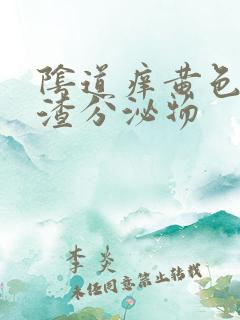 陰道痒黄色
渣分泌物
李炎
未经同意禁止转载